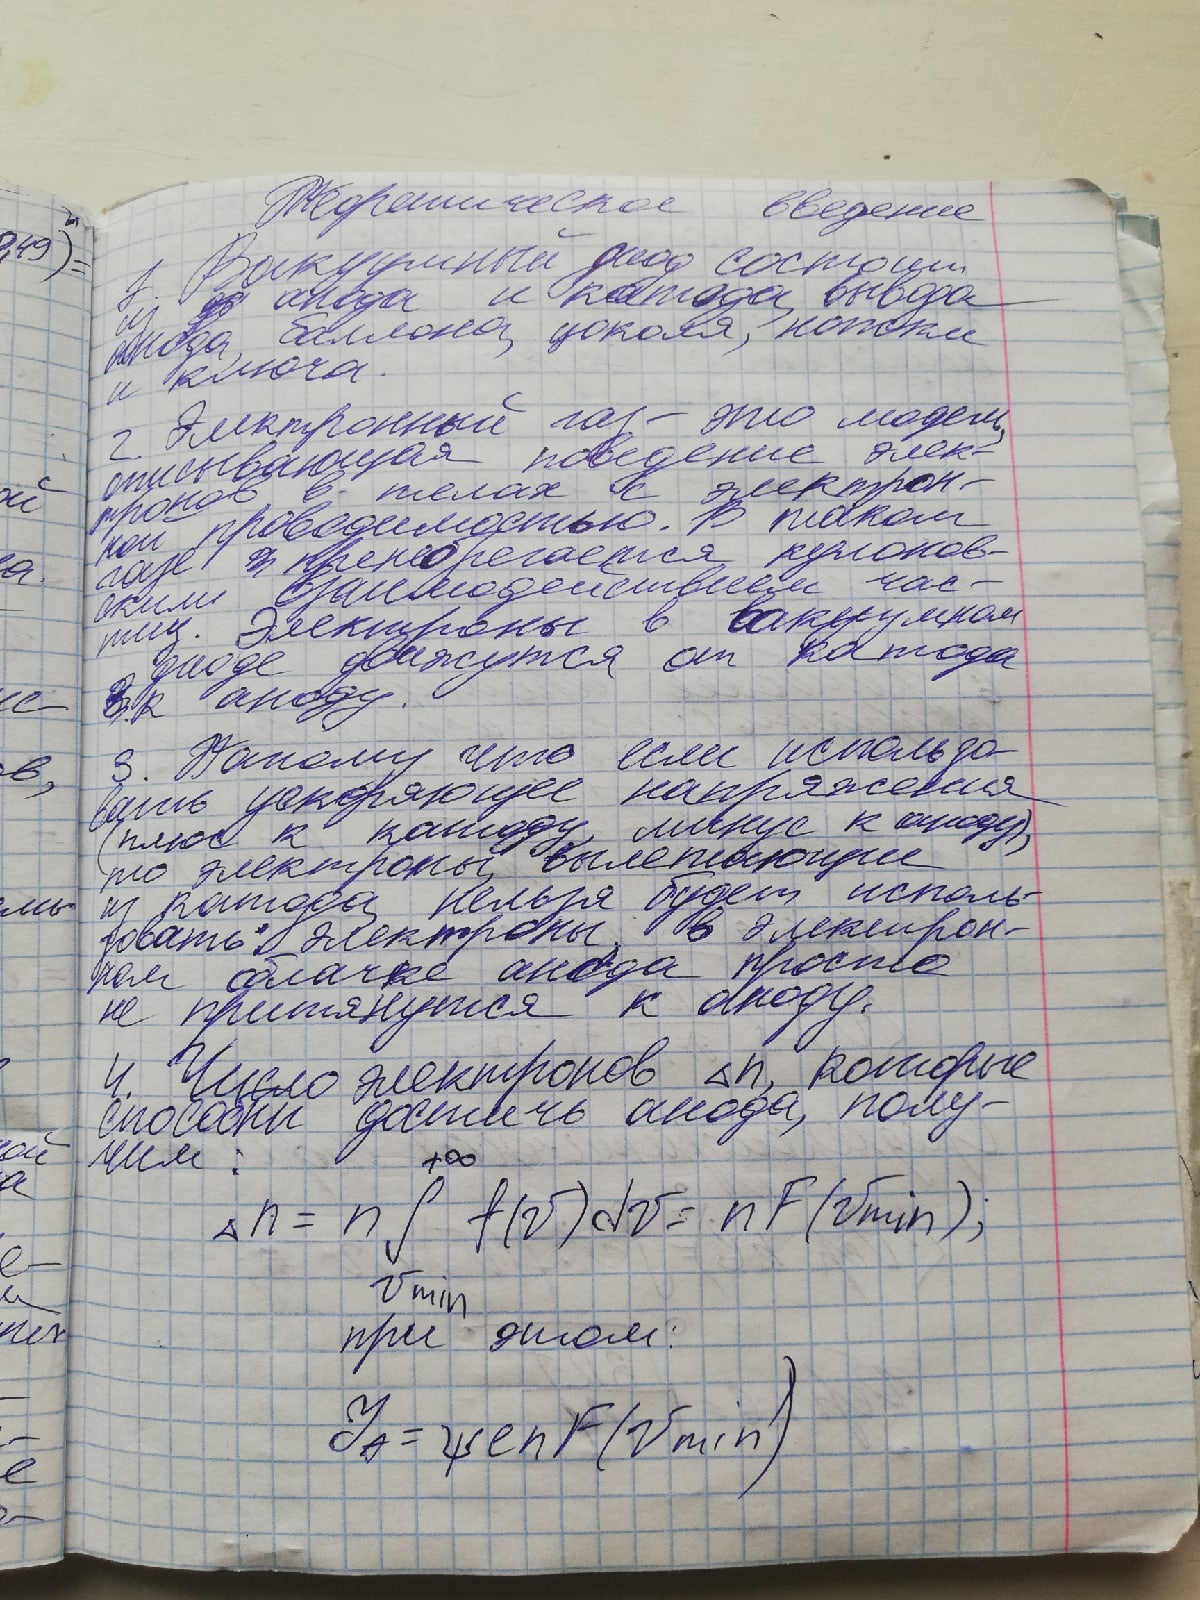 Теоретическое введение
1. Вакуумный диод состоит
из анода и катода, вывода
анода, баллона, цоколя, ножки
и ключа.
2. Электронный газ – это модель,
описывающая поведение элек-
тронов в телах с электрон-
ной проводимостью. В таком
газе пренебрегается кулонов-
ским взаимодействием час-
тиц. Электроны в вакуумном
диоде движутся от катода
к аноду.
3. Потому что если использо-
вать ускоряющее напряжения
(плюс к катоду, минус к аноду),
то электроны, вылетающие
из катода, нельзя будет исполь-
зовать. Электроны, в электрон-
ном облачке анода просто
не притянутся к аноду.
4. Число электронов Δn, которые
способны достичь анода, полу-
чим:
Δn = n ∫_{vmin}^{+∞} f(v)dv = nF(vmin);
при этом:
J_A = ψenF(vmin)
49)² =
ой
ва.
ис-
ов,
емы
ной
на
е-
-
е